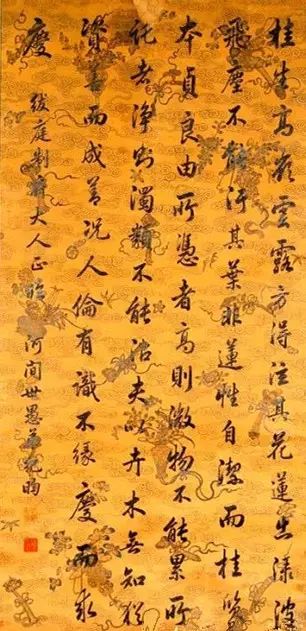 桂生高嶺雲露方得泫其花蓮出淥波
飛塵不能汚其葉非蓮性自潔而桂質
本貞良由所憑者高則微物不能累所
託者淨則濁類不能沾夫以卉木無知猶
資善而成善況人倫有識不緣慶而求
慶
庭制大人正 河間世愚弟紀昀